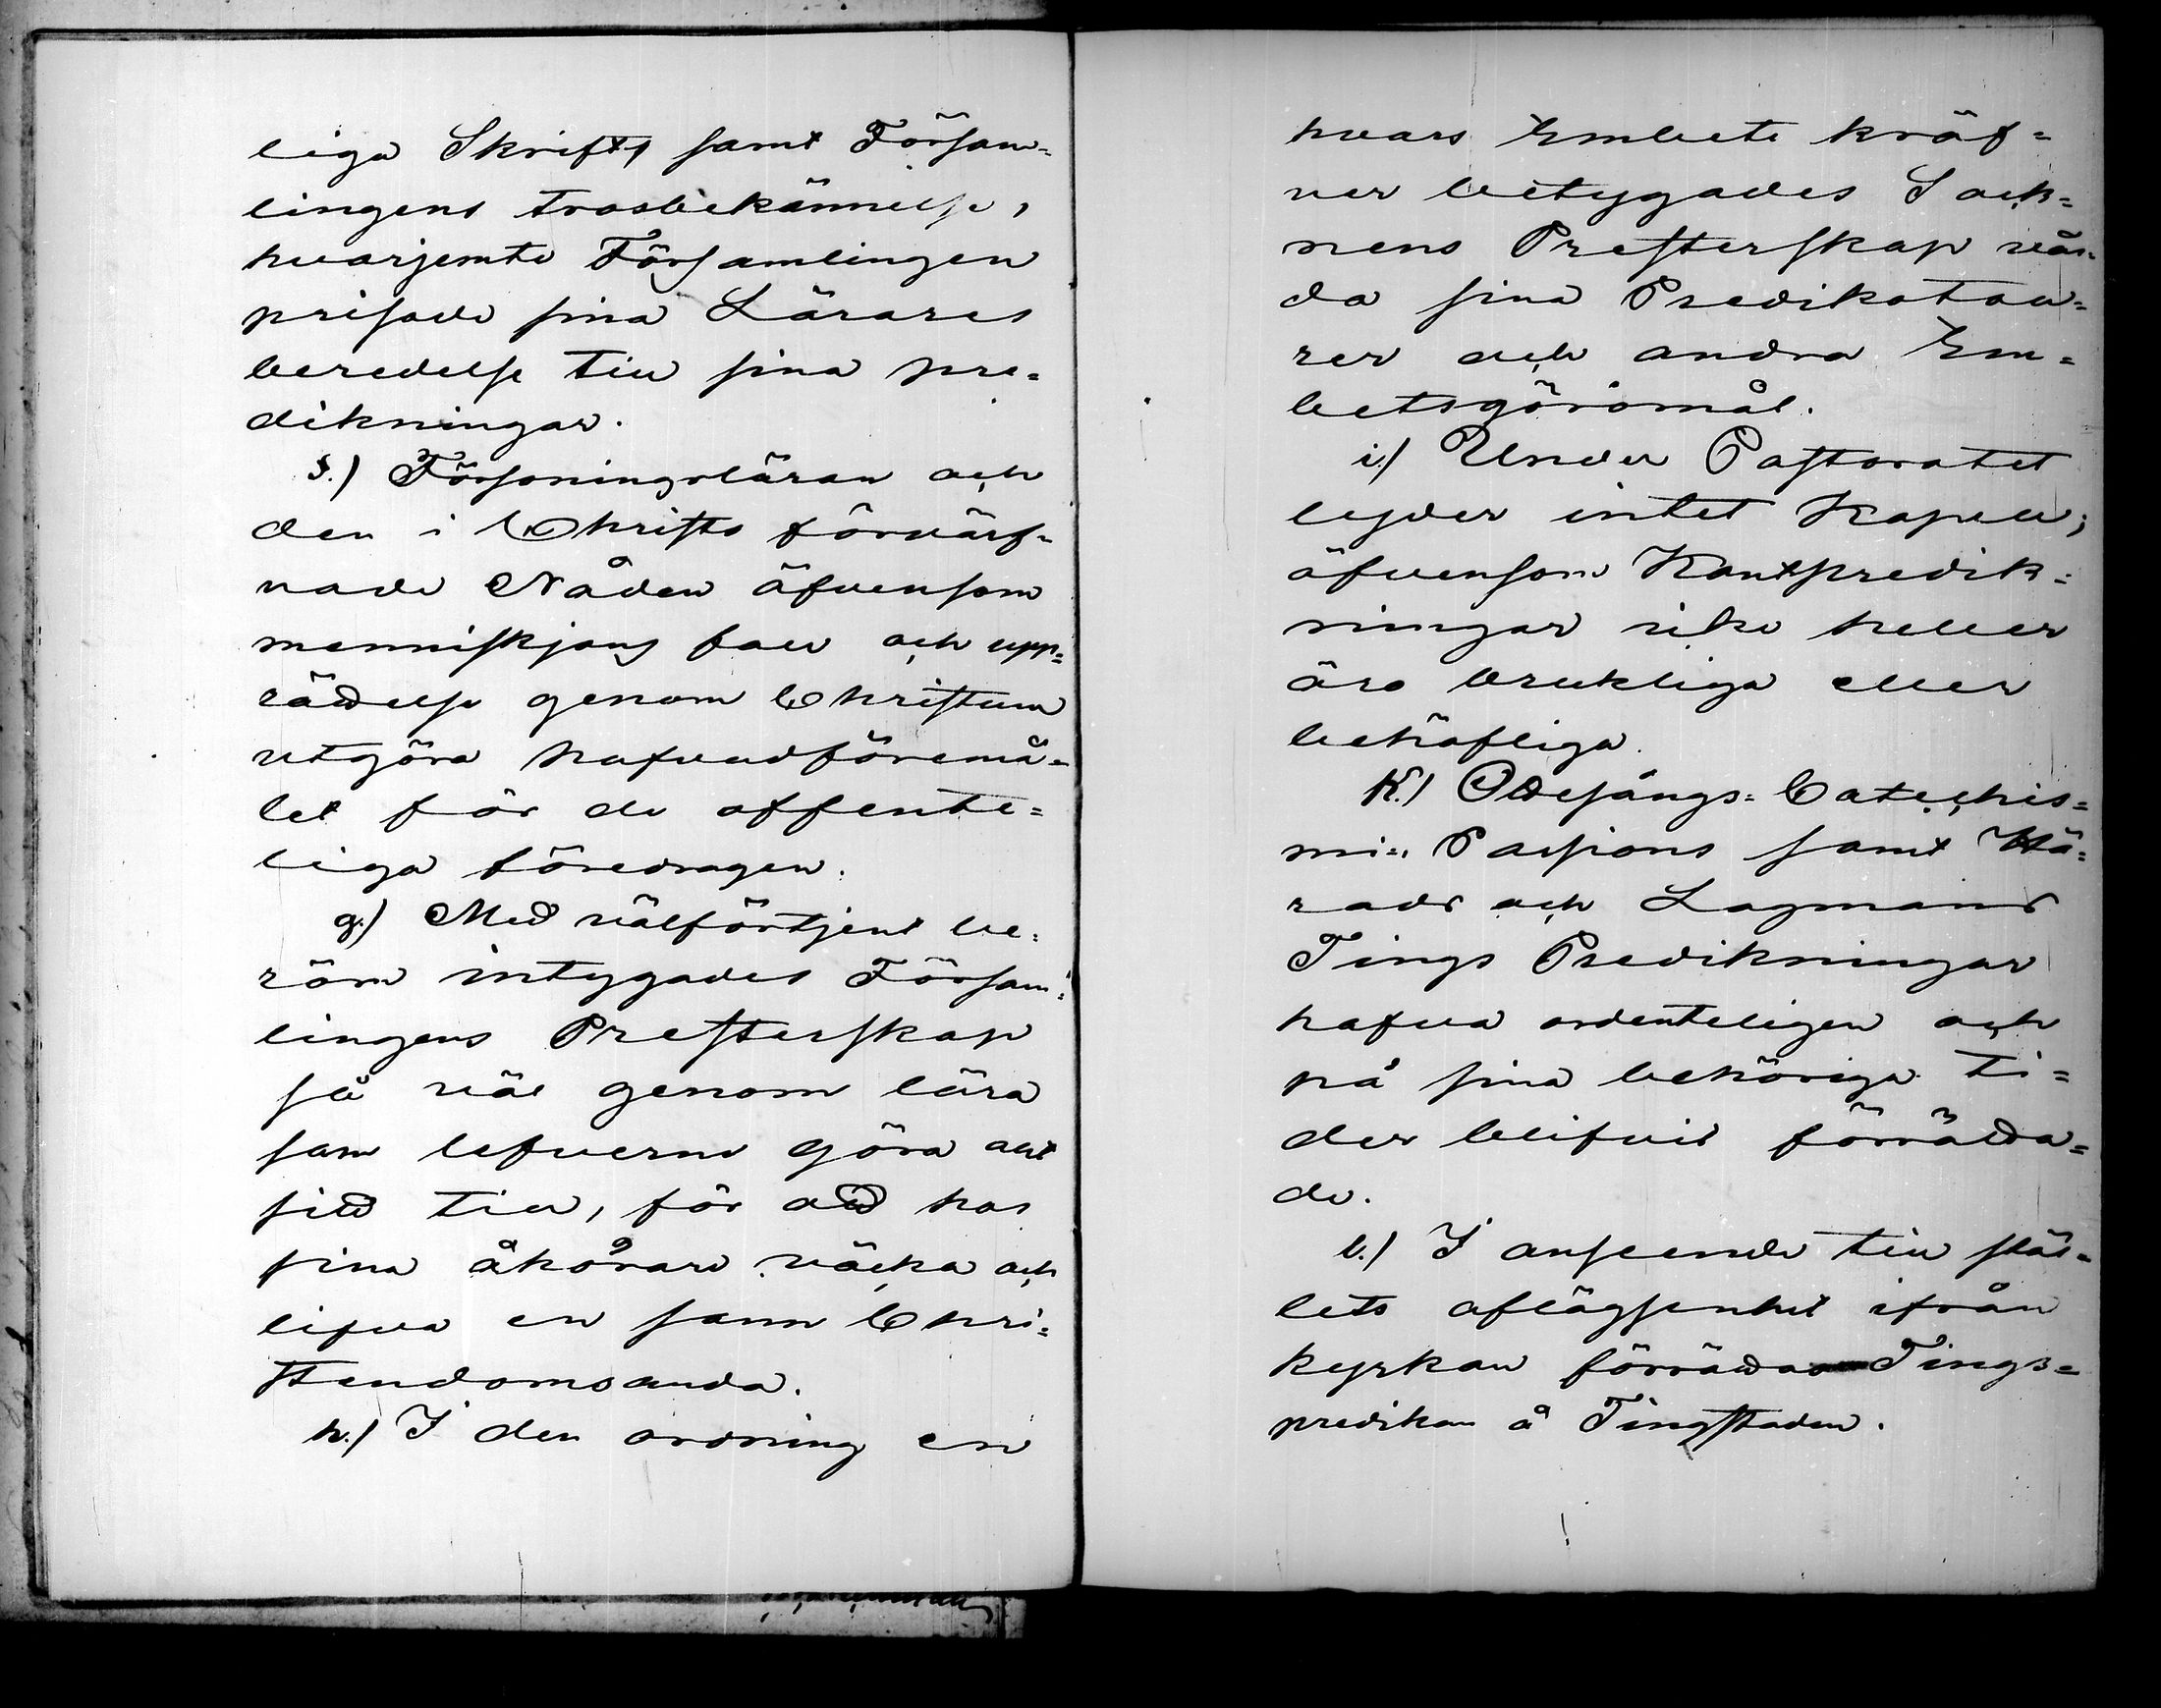 liga Skrift, samt Försam=
lingens trosbekännelse,
hvarjemte Församlingen
prisade sina Lärares
beredelse till sina pre=
dikningar.
f.) Försoningsläran och
den i Christo förvärf=
vade Nåden äfvensom
menniskjans fall och upp=
rättelse genom Christum
utgöra hufvudföremå=
let för de offente=
liga föredragen.
g.) Med välförtjent be=
röm intygades Försam=
lingens Presterskap
så väl genom lära
som lefverne göra allt
sitt till, för att hos
sina åhörare väcka och
lifva en sann Chri=
stendomsanda.
h.) I den ordning en
hvars Embete kräf=
ver betygades Sock=
nens Presterskap vår=
da sina Predikotou=
rer och andra Em=
betsgöromål.
i.) Under Pastoratet
lyder intet Kapell;
äfvensom Kontpredik=
ningar icke heller
äro brukliga eller
behöfliga.
k.) Ottesångs= Catechis=
mi= Passions samt Hä=
rads och Lagmans
Tings Predikningar
hafva ordenteligen och
på sina behöriga ti=
der blifvit förrätta=
de.
l.) I anseende till stäl=
lets aflägsenhet ifrån
kyrkan förrättas Tings=
predikan å Tingstaden.